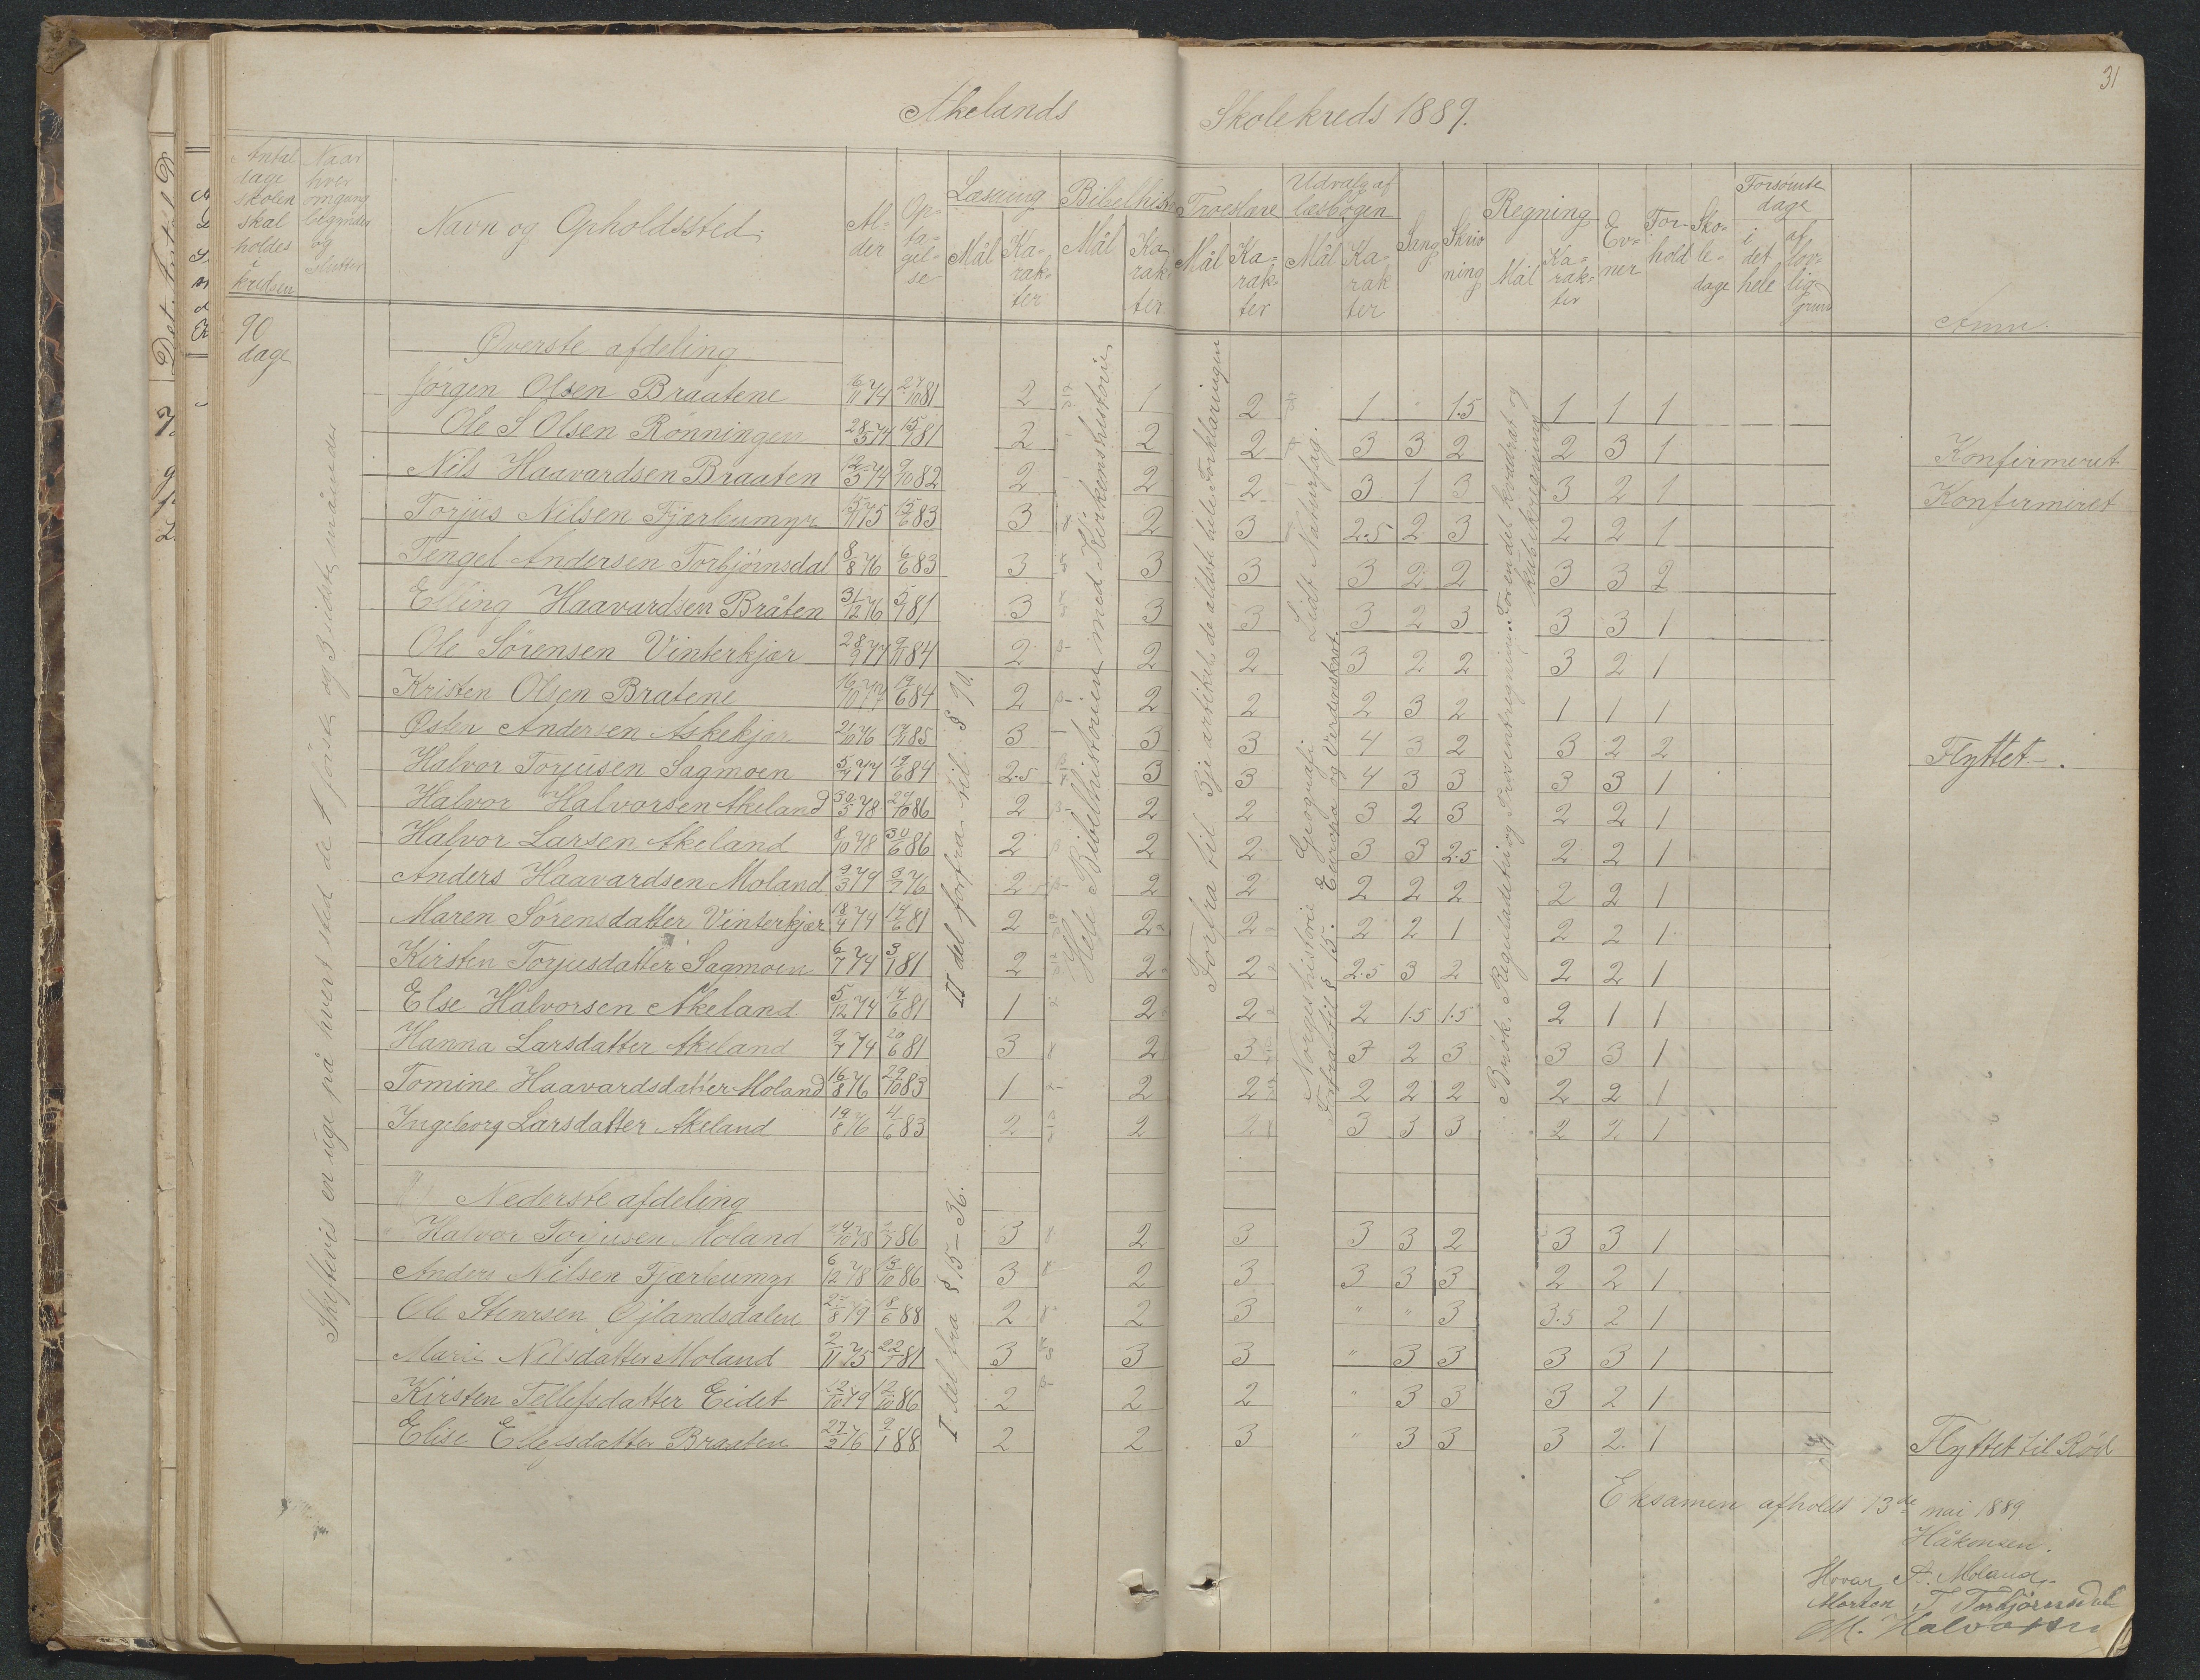 31
Akelands Skolekreds 1889.
Antal dage skolen skal holdes i kredsen
Naar hver omgang begynder og slutter
Navn og Opholdssted.
Alder
Optagelse
Læsning Mål Karakter
Bibelhist. Mål Karakter
Troeslære Mål Karakter
Udvalg af læsbogen Mål Karakter
Sang
Skrivning
Regning Mål Karakter
Evner
Forhold
Skoledage
Forsømte dage i det hele af lovlig grund
Anm.
90 dage
Skiftevis en uge på hvert sted de 4 første og 3 sidste måneder
II del forfra til § 90.
I del fra § 15 – 36.
Hele Bibelhistorien med Kirkens historie
Forfra til 3je artikel, de ældste hele Forklaringen
Norges historie Geografi Lidt Naturfag.
Forfra til § 15. Europa og Verdenskart.
Brøk, Reguladetri og Prosentregning. Foren del kvadrat og kubikregning
Øverste afdeling
Jørgen Olsen Braatene 16/11 74 27/10 81 2 1 2 1 1.5 1 1 1
Ole S Olsen Rønningen 28/5 74 15/9 81 2 2 2 3 3 2 2 3 1 Konfirmeret
Nils Haavardsen Braaten 12/3 74 9/10 82 2 2 2 3 1 3 3 2 1 Konfirmeret
Torjus Nilsen Fjærbumyr 15/11 75 15/6 83 3 2 3 2.5 2 3 2 2 1
Tengel Andersen Torbjørnsdal 8/8 76 6/6 83 3 3 3 3 2 2 3 3 2
Elling Haavardsen Bråten 31/12 76 81 3 3 3 3 2 3 3 3 1
Ole Sørensen Vinterkjær 28/9 77 84 2 2 2 3 2 2 3 2 1
Kristen Olsen Bratene 16/10 77 19/6 84 2 2 2 2 3 2 1 1 1
Østen Andersen Askekjær 76 85 3 3 3 4 3 2 3 2 2 Flyttet.
Halvor Torjusen Sagmoen 5/4 77 19/6 84 2.5 3 3 4 3 3 3 3 1
Halvor Halvorsen Akeland 30/5 78 27/10 86 2 2 2 3 2 3 2 2 1
Halvor Larsen Akeland 8/10 78 30/6 86 2 2 2 3 3 2.5 2 2 1
Anders Haavardsen Moland 9/3 74 76 2 2 2 2 2 2 2 2 1
Maren Sørensdatter Vinterkjær 18/4 74 14/6 81 2 2 2 2 2 1 2 2 1
Kirsten Torjusdatter Sagmoen 6/7 74 3/1 81 2 2 2 2.5 3 2 2 2 1
Else Halvorsen Akeland 5/12 74 14/6 81 1 2 2 2 1.5 1.5 2 1 1
Hanna Larsdatter Akeland 9/7 74 20/6 81 3 2 3 3 2 3 3 3 1
Tomine Haavardsdatter Moland 16/8 76 29/10 83 1 2 2 2 2 2 2 2 1
Ingeborg Larsdatter Akeland 19/8 76 4/6 83 2 2 2 3 3 3 2 2 1
Nederste afdeling
Halvor Torjusen Moland 24/10 78 86 3 2 3 3 3 2 3 3 1
Anders Nilsen Fjærbumyr 6/12 78 13/10 86 3 2 3 3 3 3 2 2 1
Ole Stenrsen Øjlandsdalen 79 8/6 88 2 2 3 " " 3 3.5 2 1
Marie Nilsdatter Moland 2/11 75 81 3 3 3 " 3 3 3 3 1
Kirsten Tellefsdatter Eidet 12/10 79 12/10 86 2 2 2 " 3 3 3 2 1
Elise Ellefsdatter Braaten 27/2 76 9/1 88 2 2 3 " 3 3 3 2 1 Flyttet til Rød
Eksamen afholdt 13de mai 1889
Håkonsen.
Hovar A. Moland.
Morten T Torbjørnsdal
M. Halvorsen